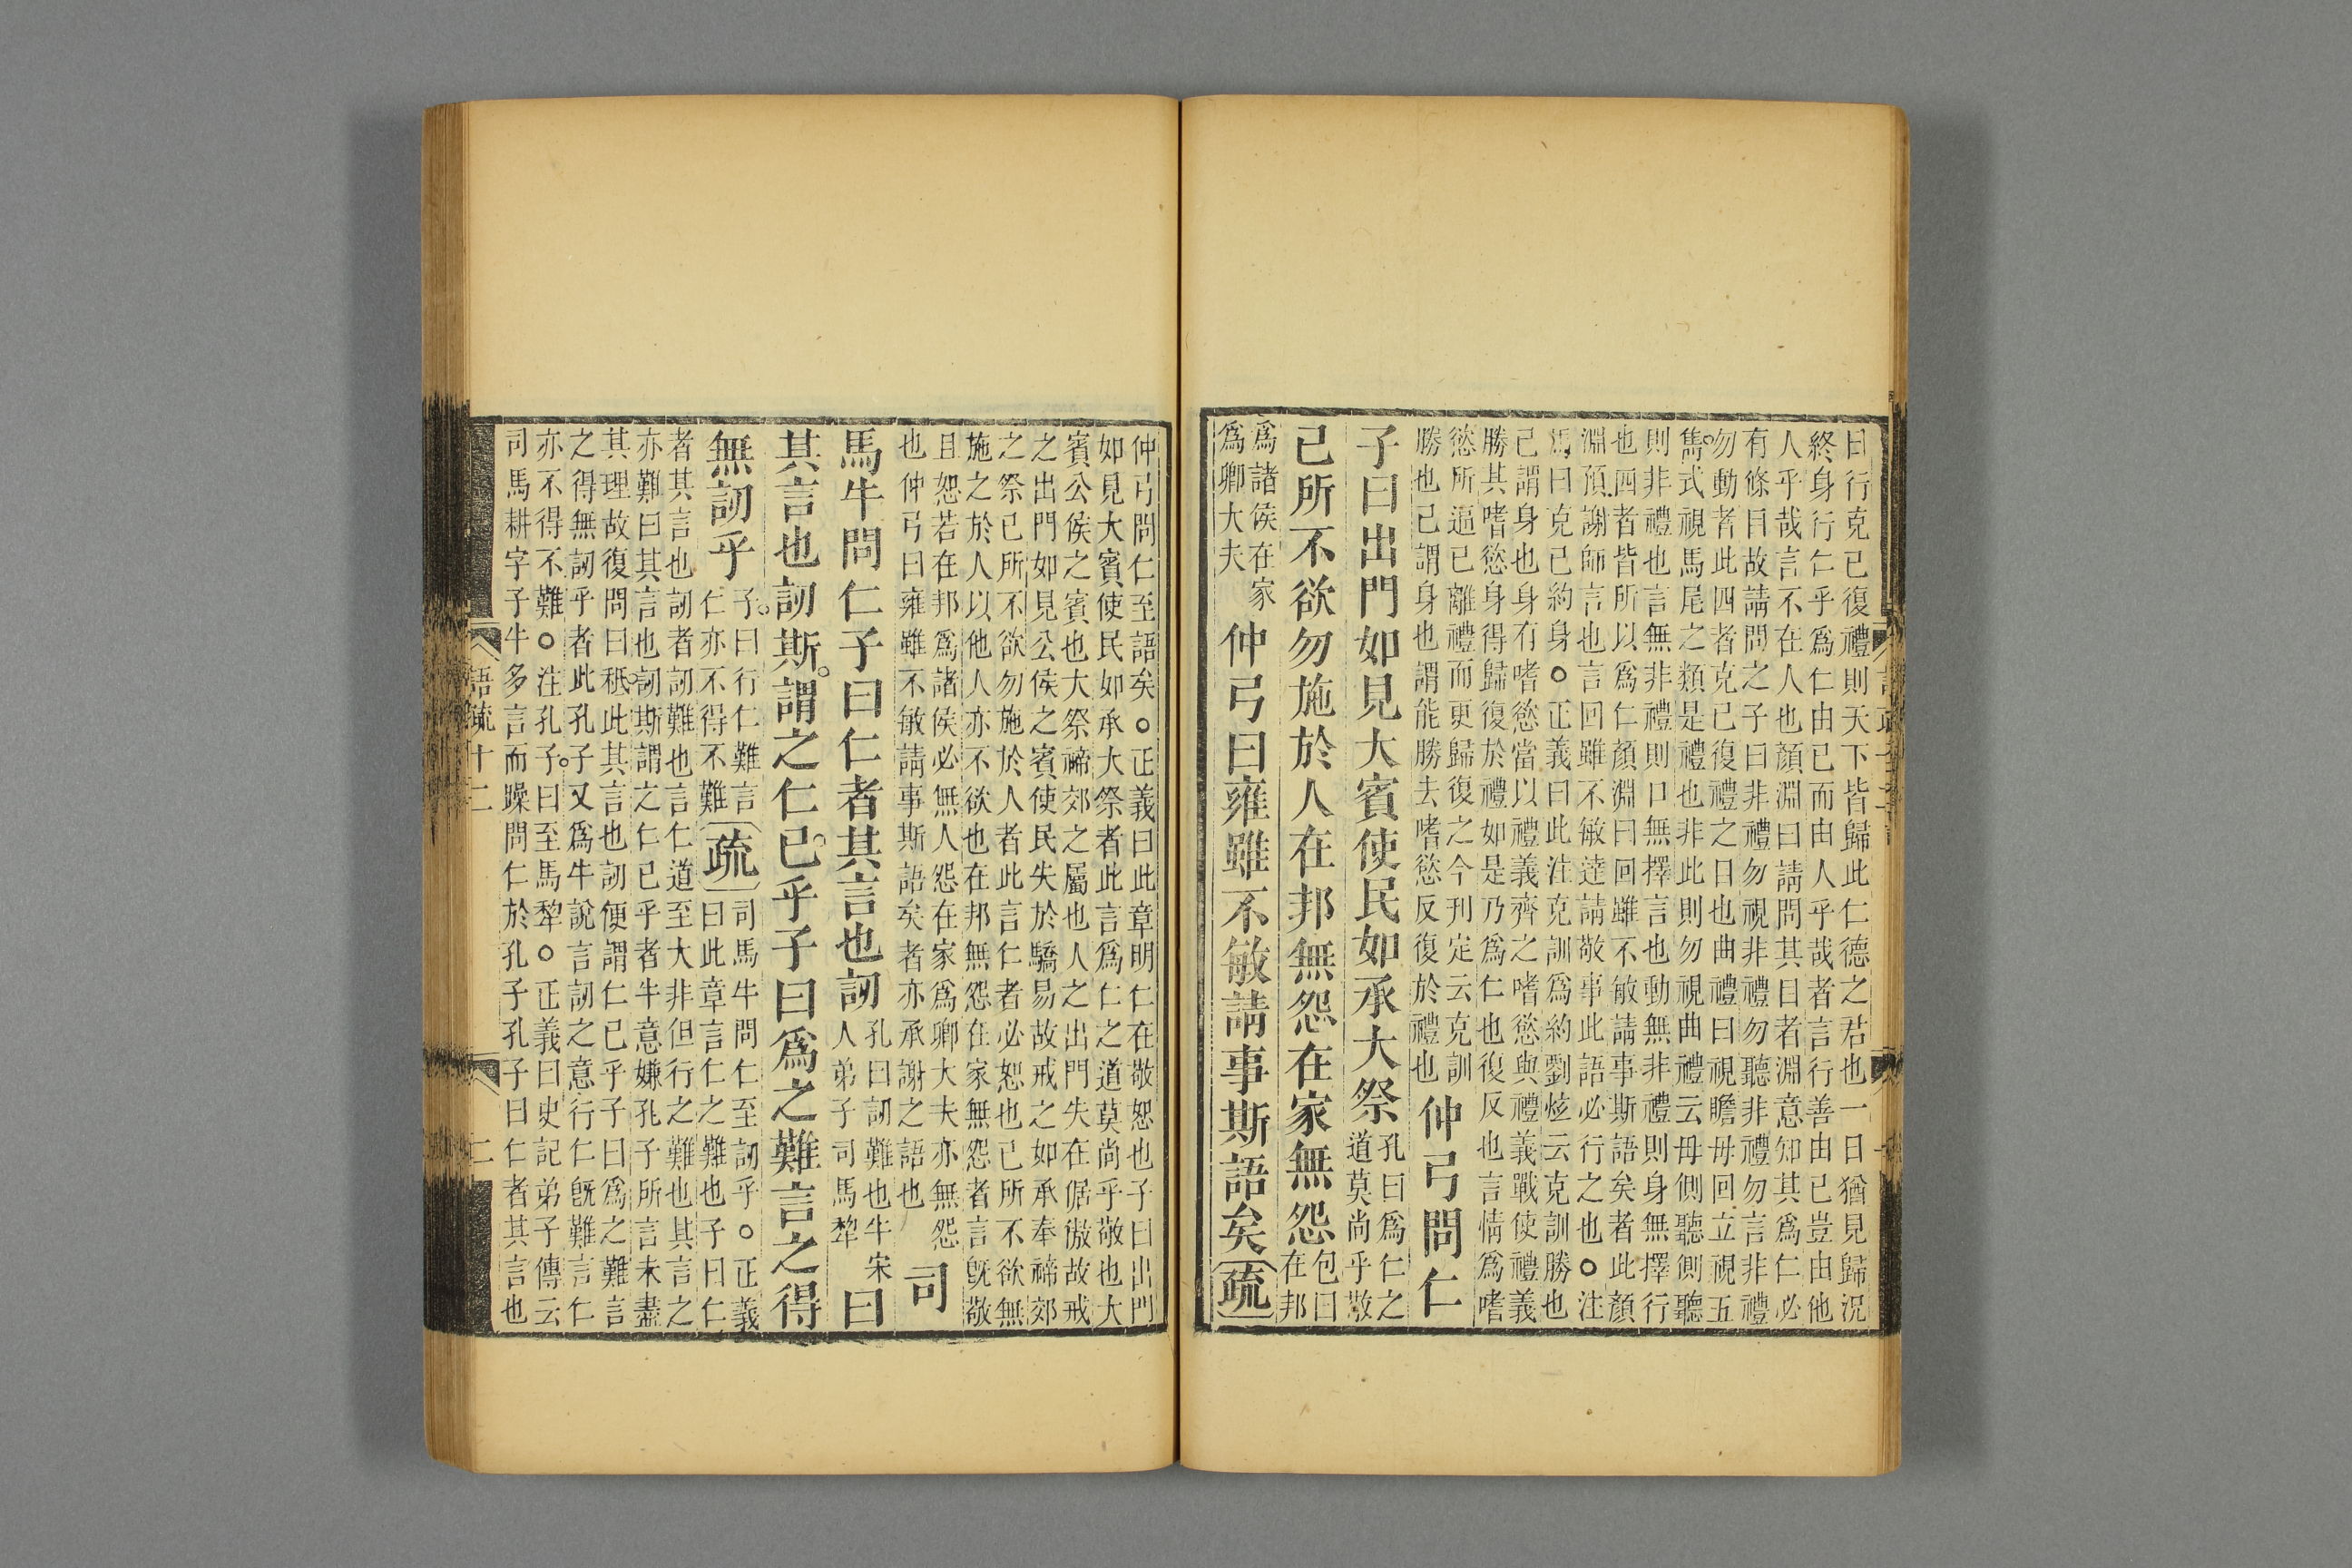 日行克己復禮則天下皆歸此仁德之君也一日猶見歸況
終身行仁乎爲仁由己而由人乎哉者言行善由己豈由他
人乎哉言不在人也顏淵曰請問其目者淵意知其爲仁必
有條目故請問之子曰非禮勿視非禮勿聽非禮勿言非禮
勿動者此四者克己復禮之目也曲禮曰視瞻毋回立視五
雋式視馬尾之類是禮也非此則勿視曲禮云毋側聽側聽
則非禮也言無非禮則口無擇言也動無非禮則身無擇行
也四者皆所以爲仁顏淵曰回雖不敏請事斯語矣者此顏
淵預謝師言也言回雖不敏達請敬事此語必行之也○注
馬曰克己約身○正義曰此注克訓爲約劉炫云克訓勝也
己謂身也身有嗜慾當以禮義齊之嗜慾與禮義戰使禮義
勝其嗜慾身得歸復於禮如是乃爲仁也復反也言情爲嗜
慾所逼已離禮而更歸復之今刊定云克訓
勝也己謂身也謂能勝去嗜慾反復於禮也
仲弓問仁
子曰出門如見大賓使民如承大祭
孔曰爲仁之
道莫尚乎敬
己所不欲勿施於人在邦無怨在家無怨
包曰
在邦
爲諸侯在家
爲卿大夫
仲弓曰雍雖不敏請事斯語矣
疏
仲弓問仁至語矣○正義曰此章明仁在敬恕也子曰出門
如見大賓使民如承大祭者此言爲仁之道莫尚乎敬也大
賓公侯之賓也大祭禘郊之屬也人之出門失在倨傲故戒
之出門如見公侯之賓使民失於驕易故戒之如承奉禘郊
之祭己所不欲勿施於人者此言仁者必恕也己所不欲無
施之於人以他人亦不欲也在邦無怨在家無怨者言既敬
且恕若在邦爲諸侯必無人怨在家爲卿大夫亦無怨
也仲弓曰雍雖不敏請事斯語矣者亦承謝之語也
司
馬牛問仁子曰仁者其言也訒
孔曰訒難也牛宋
人弟子司馬犂
曰
其言也訒斯謂之仁已乎子曰爲之難言之得
無訒乎
子曰行仁難言
仁亦不得不難
疏
司馬牛問仁至訒乎○正義
曰此章言仁之難也子曰仁
者其言也訒者訒難也言仁道至大非但行之難也其言之
亦難曰其言也訒斯謂之仁已乎者牛意嫌孔子所言未盡
其理故復問曰秖此其言也訒便謂仁已乎子曰爲之難言
之得無訒乎者此孔子又爲牛說言訒之意行仁既難言仁
亦不得不難○注孔子曰至馬犂○正義曰史記弟子傳云
司馬耕字子牛多言而躁問仁於孔子孔子曰仁者其言也
語疏十二
二